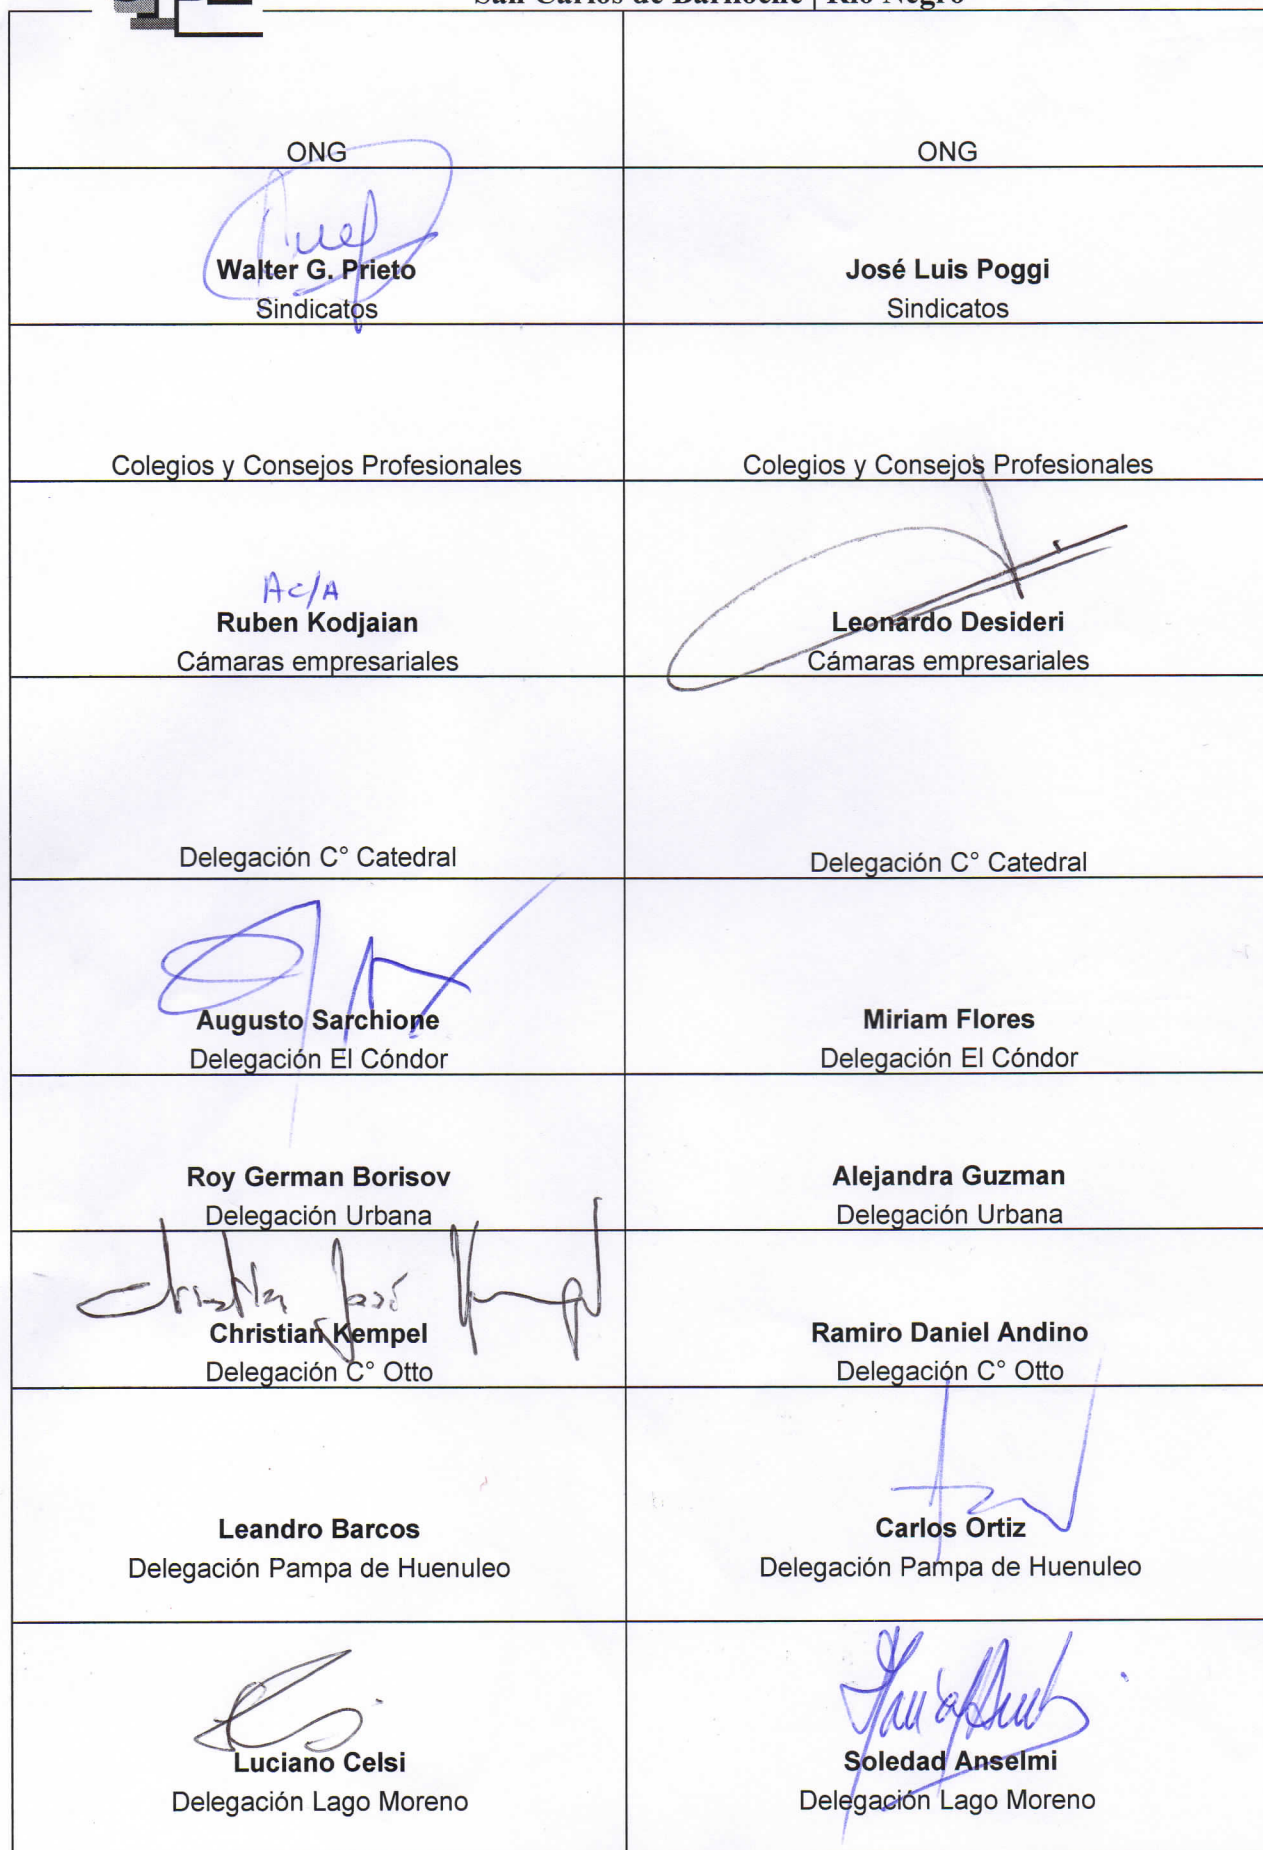 San Carlos de Bariloche | Río Negro
ONG
ONG
Walter G. Prieto
Sindicatos
José Luis Poggi
Sindicatos
Colegios y Consejos Profesionales
Colegios y Consejos Profesionales
Ac/A
Ruben Kodjaian
Cámaras empresariales
Leonardo Desideri
Cámaras empresariales
Delegación C° Catedral
Delegación C° Catedral
Augusto Sarchione
Delegación El Cóndor
Miriam Flores
Delegación El Cóndor
Roy German Borisov
Delegación Urbana
Alejandra Guzman
Delegación Urbana
Christian José Kempel
Christian Kempel
Delegación C° Otto
Ramiro Daniel Andino
Delegación C° Otto
Leandro Barcos
Delegación Pampa de Huenuleo
Carlos Ortiz
Delegación Pampa de Huenuleo
Luciano Celsi
Delegación Lago Moreno
Soledad Anselmi
Delegación Lago Moreno